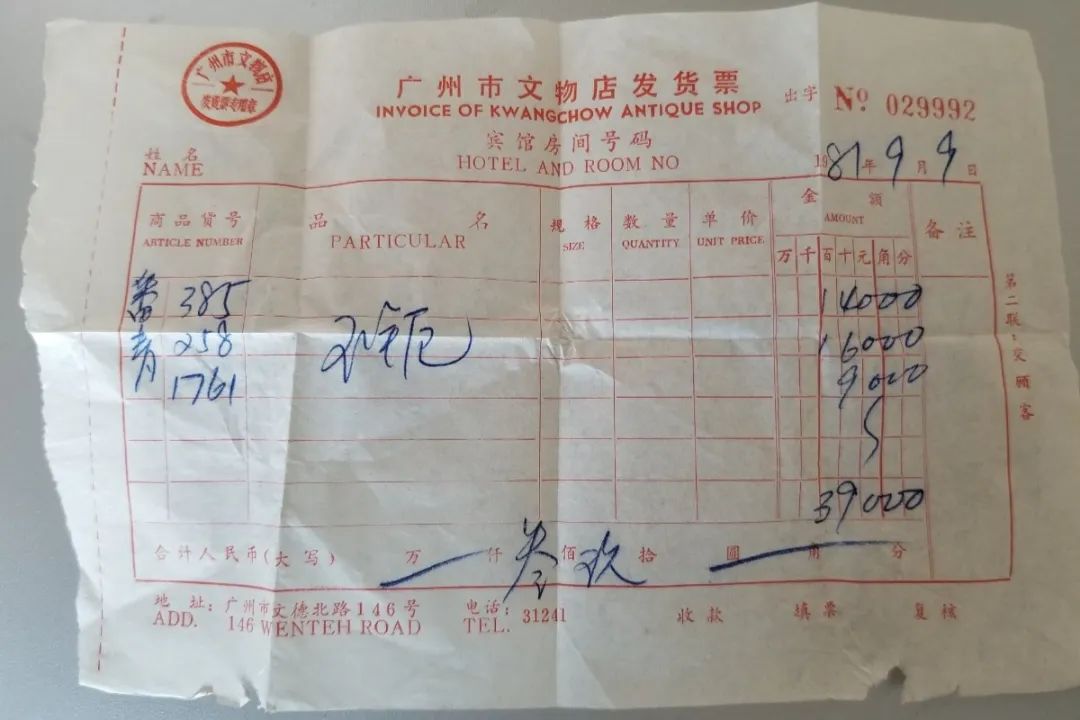 广州市文物店
发货票专用章
广州市文物店发货票
INVOICE OF KWANGCHOW ANTIQUE SHOP
出字 № 029992
宾馆房间号码
HOTEL AND ROOM NO
姓名
NAME
1981年9月9日
商品货号 品名 规格 数量 单价 金额 备注
ARTICLE NUMBER PARTICULAR SIZE QUANTITY UNIT PRICE AMOUNT
万千百十元角分
385 14000
258 16000
1761 9000
39000
合计人民币(大写) 万 仟 叁 佰 玖 拾 圆 角 分
地址:广州市文德北路146号 电话:31241 收款 填票 复核
ADD. 146 WENTEH ROAD TEL.
第二联:交顾客